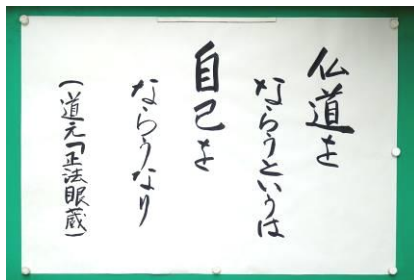 仏道を
ならうというは
自己を
ならうなり
(道元「正法眼蔵)